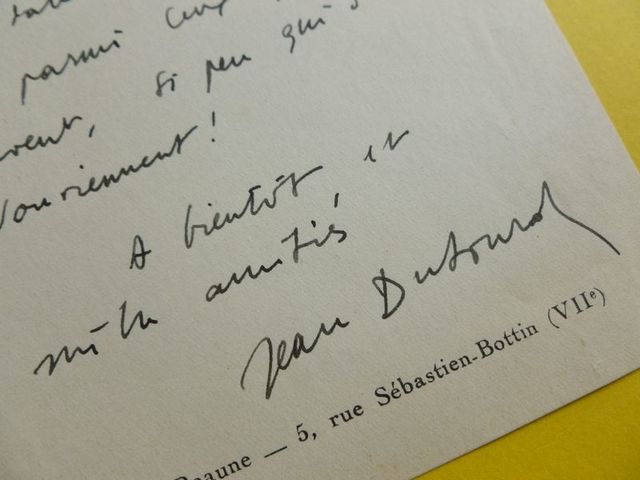 parmi cinq
si peu qui s
vent,
souviennent !
A bientôt et
mille amitiés
Jean Dutourd
Beaune — 5, rue Sébastien-Bottin (VIIe)